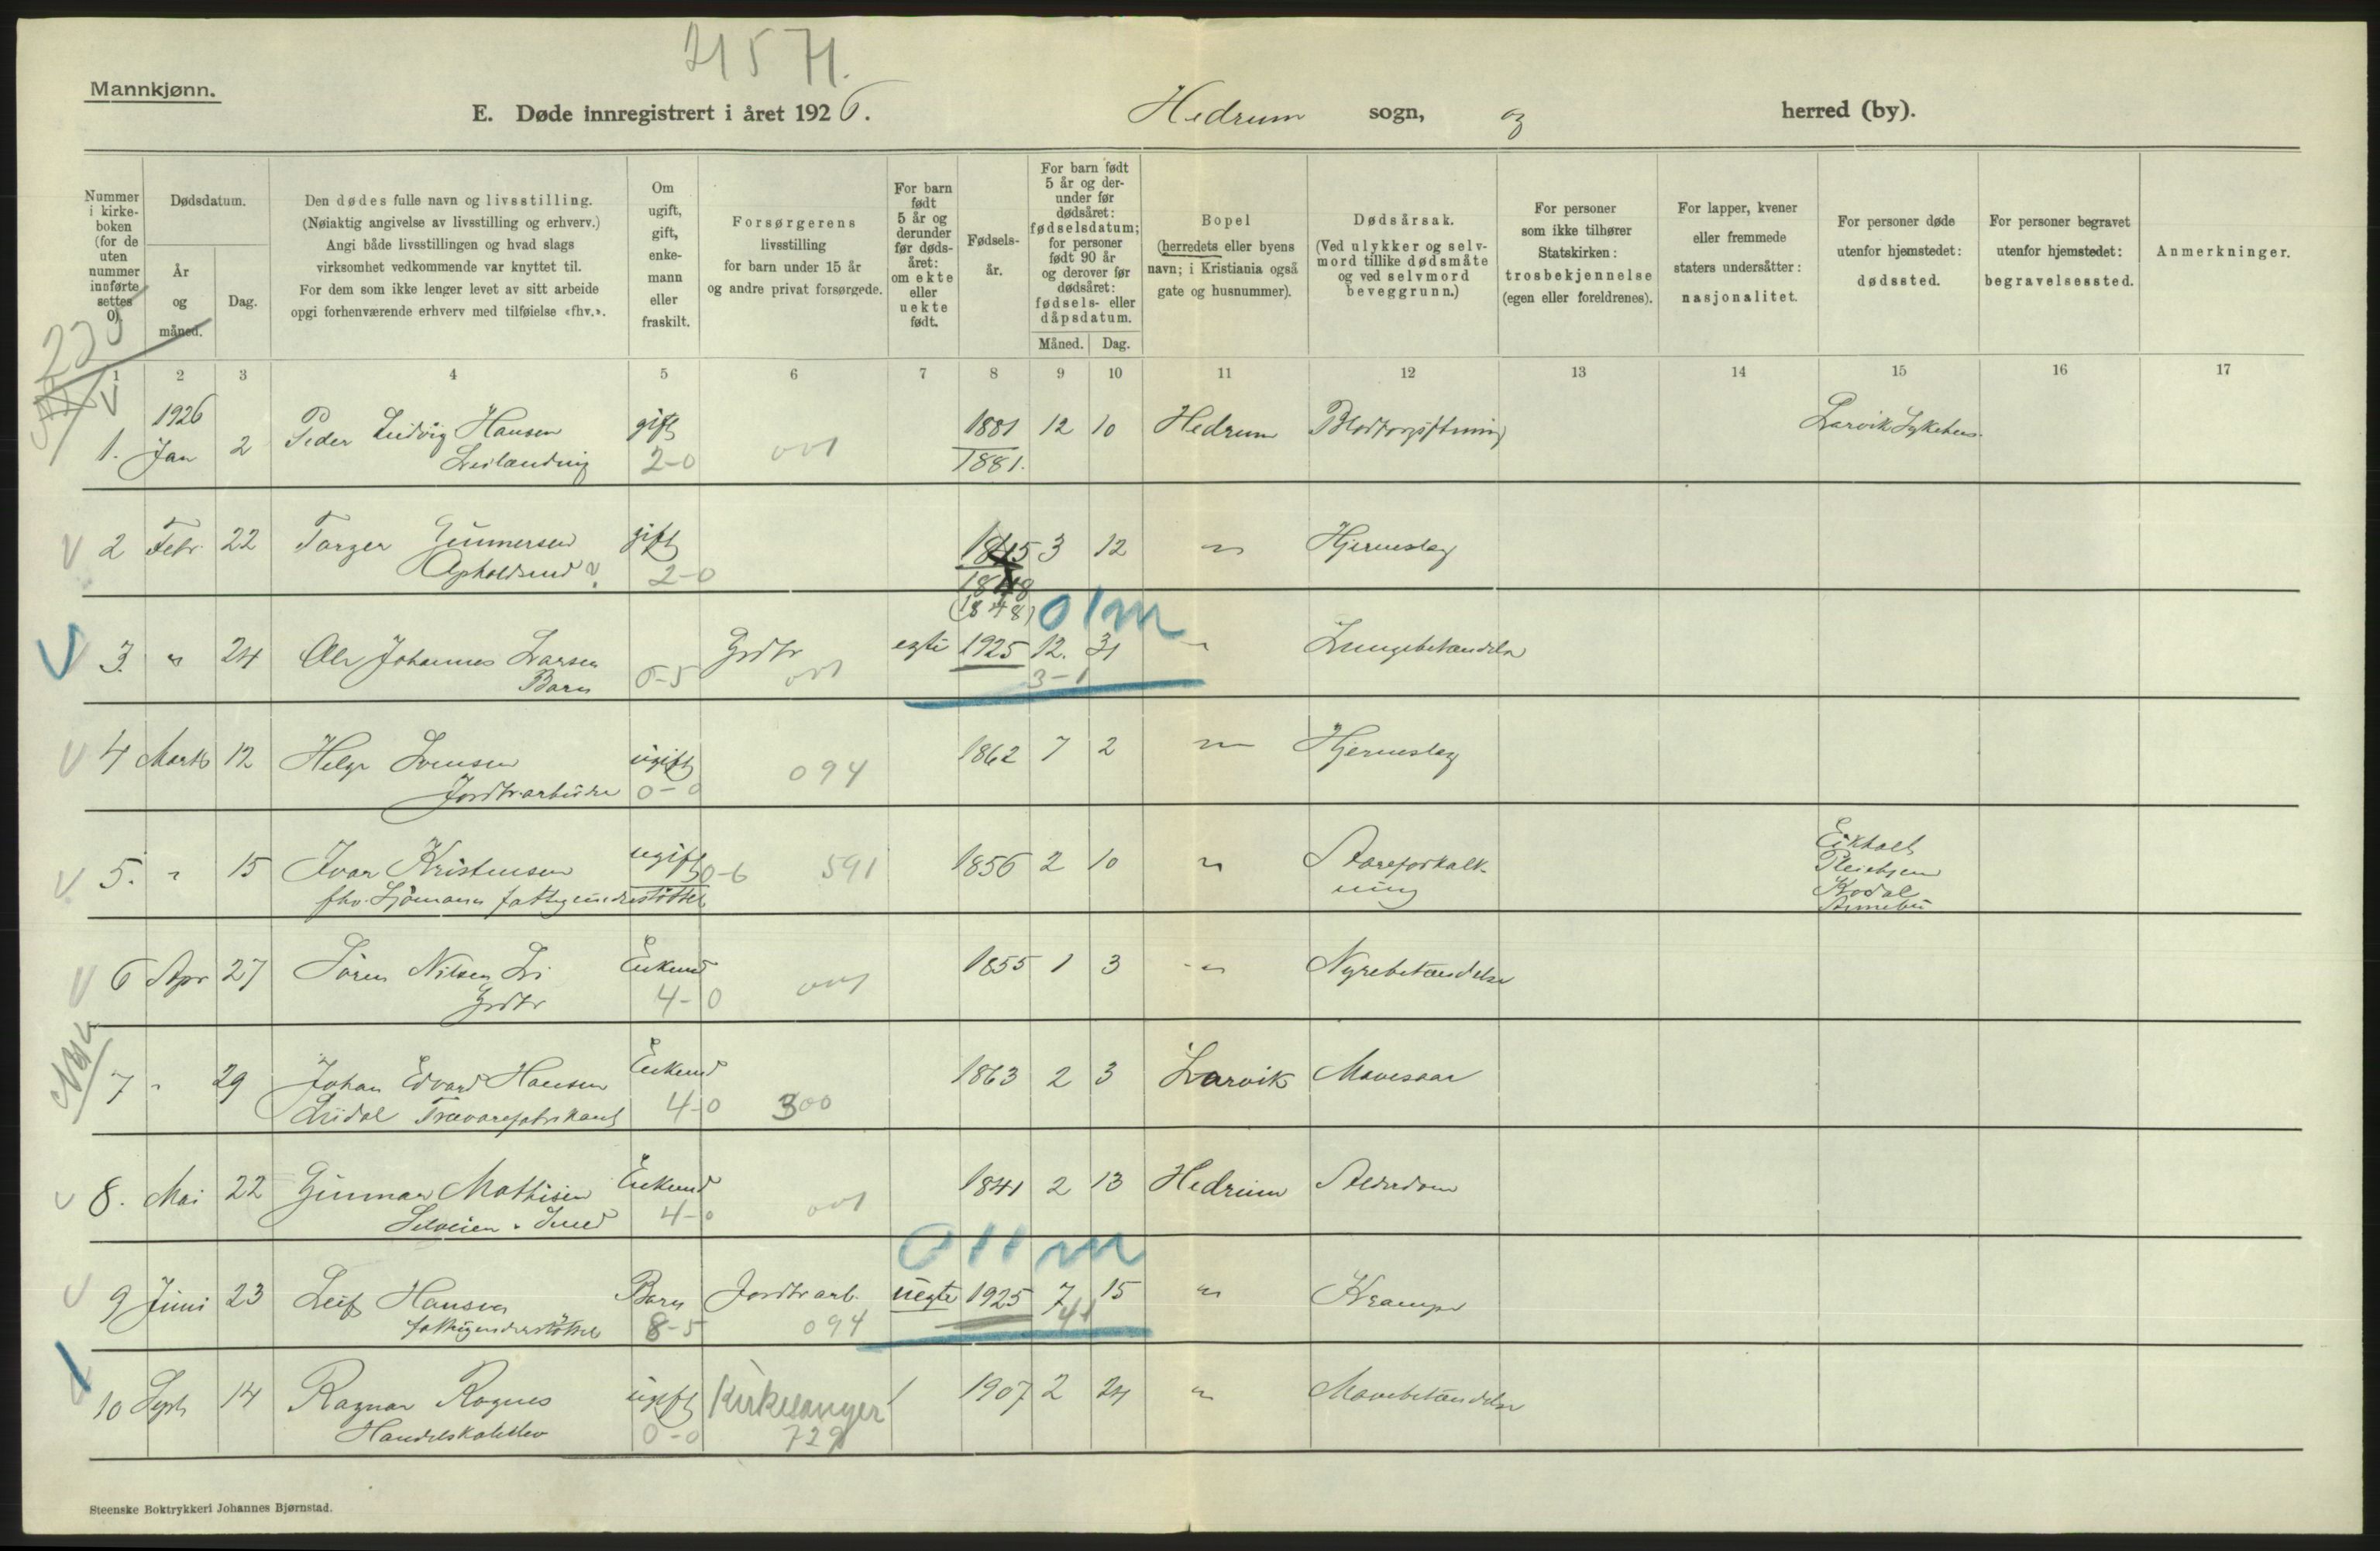 21571.
Mannkjønn.
E. Døde innregistrert i året 1926. Hedrum sogn, og herred (by).
Nummer i kirkeboken (for de uten nummer innførte settes 0).
Dødsdatum.
År og måned.
Dag.
Den dødes fulle navn og livsstilling.
(Nøiaktig angivelse av livsstilling og erhverv.)
Angi både livsstillingen og hvad slags
virksomhet vedkommende var knyttet til.
For dem som ikke lenger levet av sitt arbeide
opgi forhenværende erhverv med tilføielse «fhv.».
Om ugift, gift, enkemann eller fraskilt.
Forsørgerens
livsstilling
for barn under 15 år
og andre privat forsørgede.
For barn født 5 år og derunder før dødsåret: om ekte eller uekte født.
Fødselsår.
For barn født 5 år og derunder før dødsåret: fødselsdatum; for personer født 90 år og derover før dødsåret: fødsels- eller dåpsdatum.
Måned. Dag.
Bopel
(herredets eller byens
navn; i Kristiania også
gate og husnummer).
Dødsårsak.
(Ved ulykker og selvmord tillike dødsmåte
og ved selvmord
beveggrunn.)
For personer
som ikke tilhører
Statskirken:
trosbekjennelse
(egen eller foreldrenes).
For lapper, kvener
eller fremmede
staters undersåtter:
nasjonalitet.
For personer døde
utenfor hjemstedet:
dødssted.
For personer begravet
utenfor hjemstedet:
begravelsessted.
Anmerkninger.
1 2 3 4 5 6 7 8 9 10 11 12 13 14 15 16 17
1926
1. Jan 2 Peder Ludvig Hansen gift 1881 12 10 Hedrum Blodforgiftning Larvik Sykehus.
2-0 001 1881.
2 Febr. 22 Torger Gunnersen gift 1845 3 12 " Hjerneslag
2-0 1848
(1848) 01m
3. " 24 Ole Johannes Larsen Grdbr egte 1925 12. 31 " Lungebetændelse
Barn 6-5 001 3-1
4 Marts 12 Helge Svensen ugift 1862 7 2 " Hjerneslag
Jordbr.arbeider 0-0 094
5. " 15 Ivar Kristensen ugift 0-6 591 1856 2 10 " Aareforkalkning Eikholt Pleiehjem Kodal Arnebu
fhv. Sjömann fattigunderstöttet
6 Apr 27 Sören Nilsen Li Enkemd 1855 1 3 " Nyrebetændelse
Grdbr 4-0 001
7 " 29 Johan Edvard Hansen Enkemd 1863 2 3 Larvik Mavesaar
Trævarefabrikant 4-0 300
8. Mai 22 Gunnar Mathisen Enkemd 1841 2 13 Hedrum Alderdom
4-0 001
011m
9 Juni 23 Leif Hansen Barn Jordbr arb. uegte 1925 7 15 " Krampe
fattigunderstöttet 8-5 094 41
10 Sept. 14 Ragnar Rognes ugift Kirkesanger 1907 2 24 " Mavebetændelse
Handelskolelev 0-0 729
Steenske Boktrykkeri Johannes Bjørnstad.